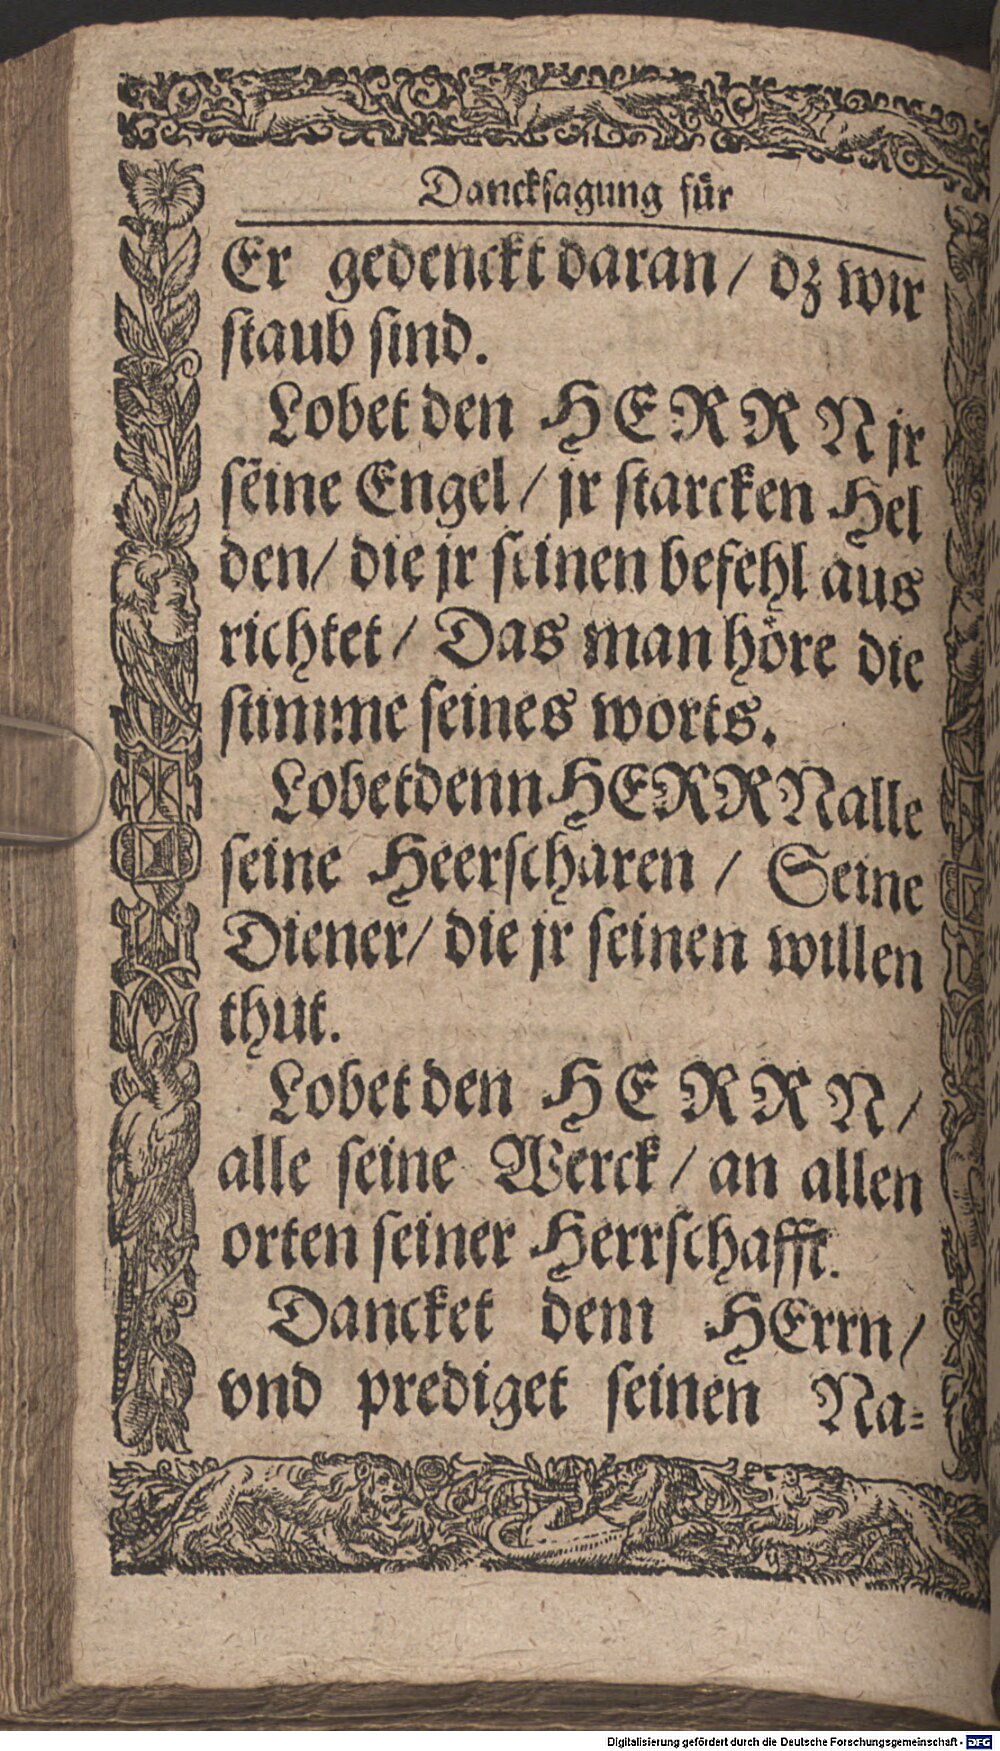 Danckſagung fuͤr
Er gedenckt daran / dz wir
ſtaub ſind.
Lobet den HERRN jr
ſeine Engel / jr ſtarcken Hel
den / die jr ſeinen befehl aus
richtet / Das man hoͤre die
ſtimme ſeines worts.
Lobet denn HERRN alle
ſeine Heerſcharen / Seine
Diener / die jr ſeinen willen
thut.
Lobet den HERRN /
alle ſeine Werck / an allen
orten ſeiner Herrſchafft.
Dancket dem HErrn /
vnd prediget ſeinen Na⸗
Digitalisierung gefördert durch die Deutsche Forschungsgemeinschaft - DFG